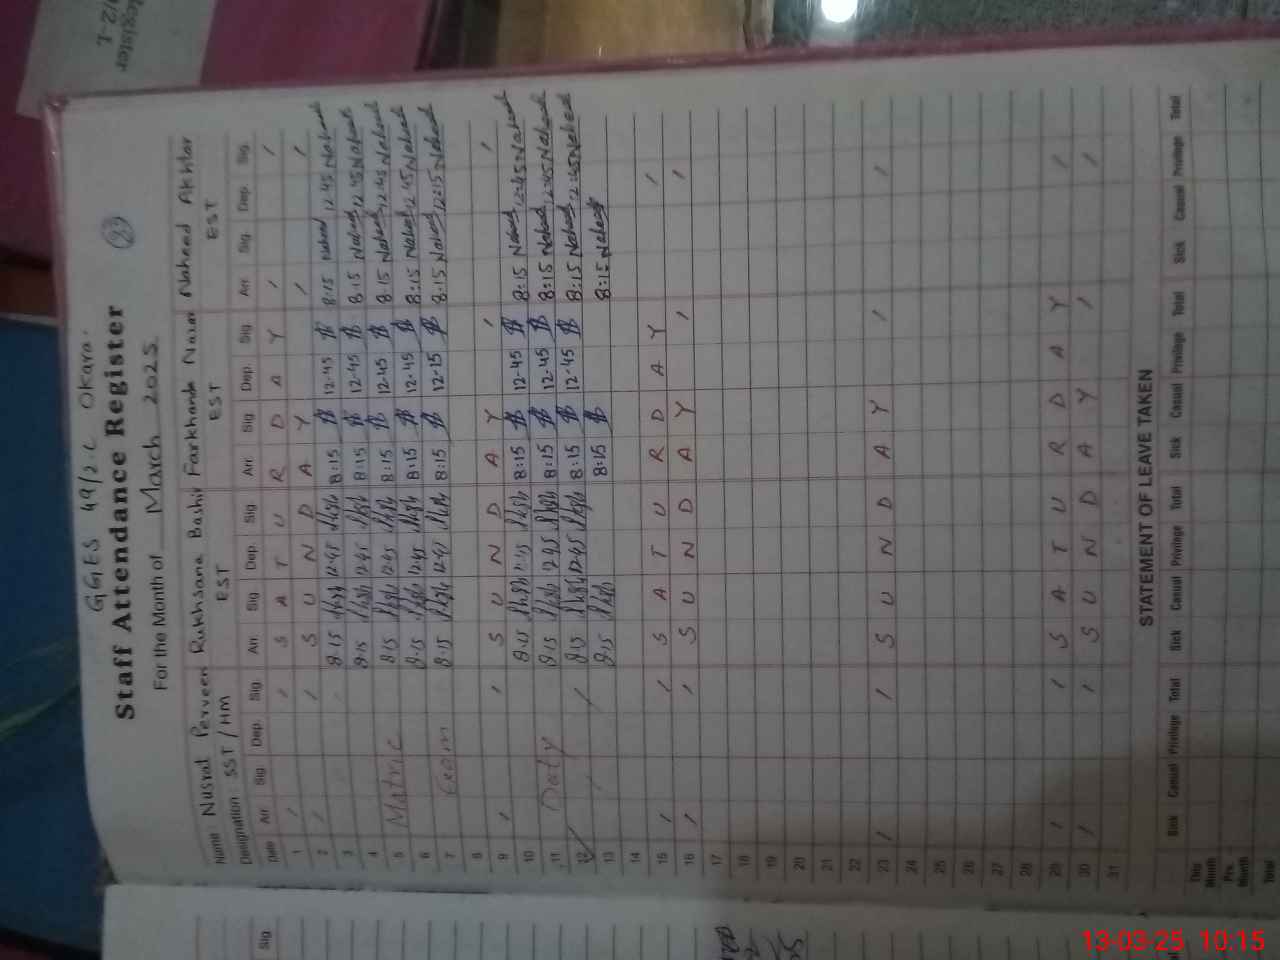 GGES 49/2.L Okara.
Staff Attendance Register
23
For the Month of March 2025
Name Nusrat Perveen Rukhsana Bashir Farkhanda Naheed Akhtar
Designation: SST/HM EST EST EST
Date Arr Sig Dep. Sig Arr Sig Dep. Sig Arr Sig Dep. Sig Arr Sig Dep. Sig
1 S A T U R D A Y
2 S U N D A Y
3 8.15 12.45 8:15 12.45 8.15 Naheed 12.45 Naheed
4 8.15 12.45 8:15 12.45 8.15 Naheed 12.45 Naheed
5 Matric 8.15 12.45 8:15 12.45 8.15 Naheed 12.45 Naheed
6 8.15 12.45 8:15 12.45 8:15 Naheed 12.45 Naheed
7 Exam 8.15 12.45 8:15 12-15 8.15 Naheed 12:15 Naheed
8
9 S U N D A Y
10 8.15 8:15 12-45 8:15 Naheed 12.45 Naheed
11 Duty 8.15 12.45 8:15 12-45 8:15 Naheed 12.45 Naheed
12 8.15 12.45 8:15 12-45 8:15 Naheed 12.45 Naheed
13 8.15 8:15 8:15 Naheed
14
15 S A T U R D A Y
16 S U N D A Y
17
18
19
20
21
22
23 S U N D A Y
24
25
26
27
28
29 S A T U R D A Y
30 S U N D A Y
31
STATEMENT OF LEAVE TAKEN
Sick Casual Privilege Total Sick Casual Privilege Total Sick Casual Privilege Total Sick Casual Privilege Total
This Month
Prv. Month
Total
Sig
Register
13-03-25 10:15